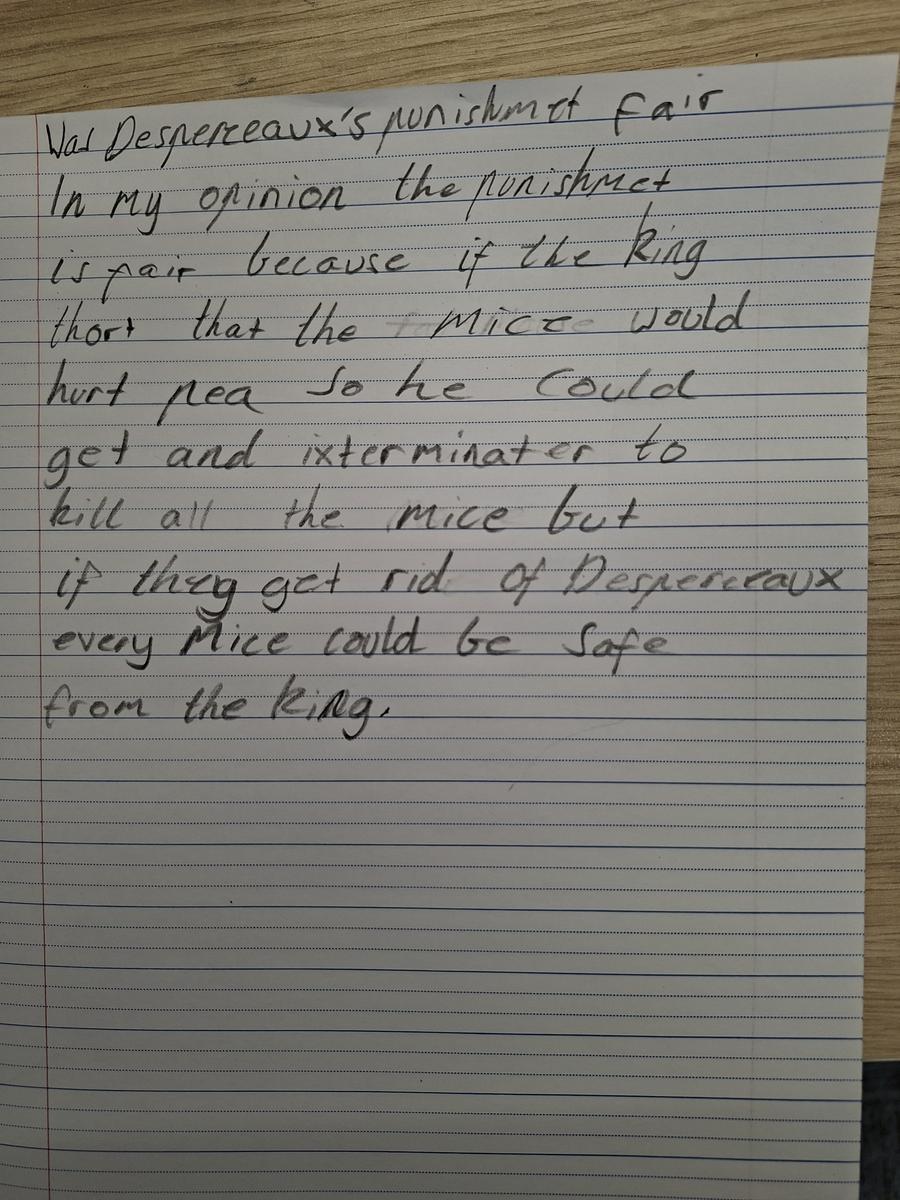 Was Despereeaux's punishmet fair
In my opinion the punishmet
is fair because if the king
thort that the Mice would
hurt pea so he Could
get and ixterminater to
kill all the mice but
if theyg get rid of Despereeaux
every Mice could be Safe
from the king.